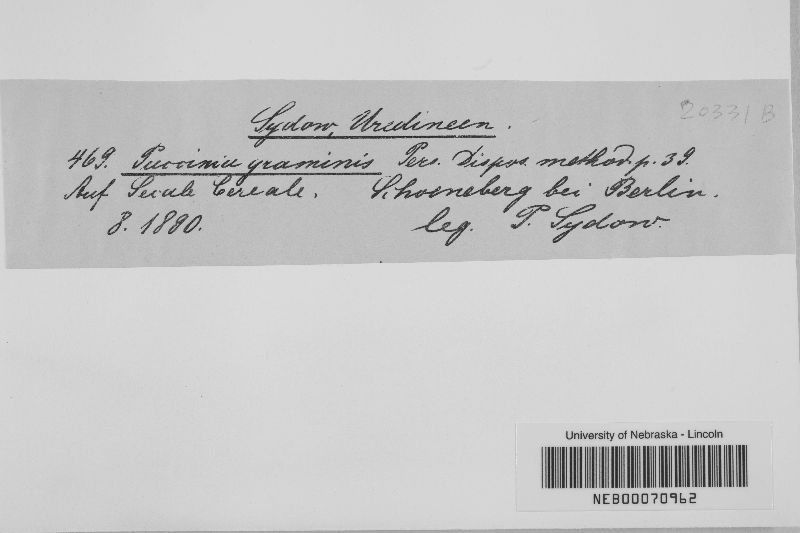 20331 B
Sydow, Uredineen.
469. Puccinia graminis Pers. Dispos. method. p. 39.
Auf Secale Cereale. Schoeneberg bei Berlin.
8. 1890. leg. P. Sydow.
University of Nebraska - Lincoln
NEB00070962